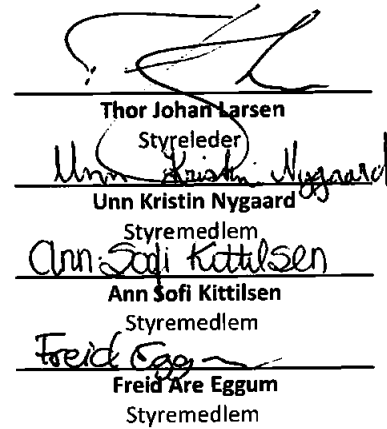 Thor Johan Larsen
Styreleder
Unn Kristin Nygaard
Unn Kristin Nygaard
Styremedlem
Ann Sofi Kittilsen
Ann Sofi Kittilsen
Styremedlem
Freid Egg
Freid Are Eggum
Styremedlem